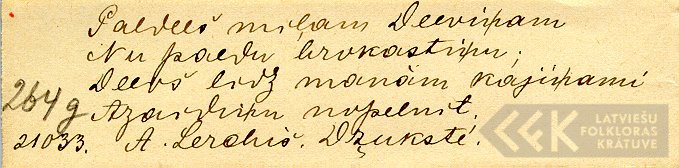 Paldeeš miļam Deeviņam
Nu paedu brokastiņu,
Deevš lidz manām kājiņami
264 g Azaidiņu nopelnit.
21033. A. Lerchiš. Džukstē.
LATVIEŠU
FOLKLORAS
KRĀTUVE